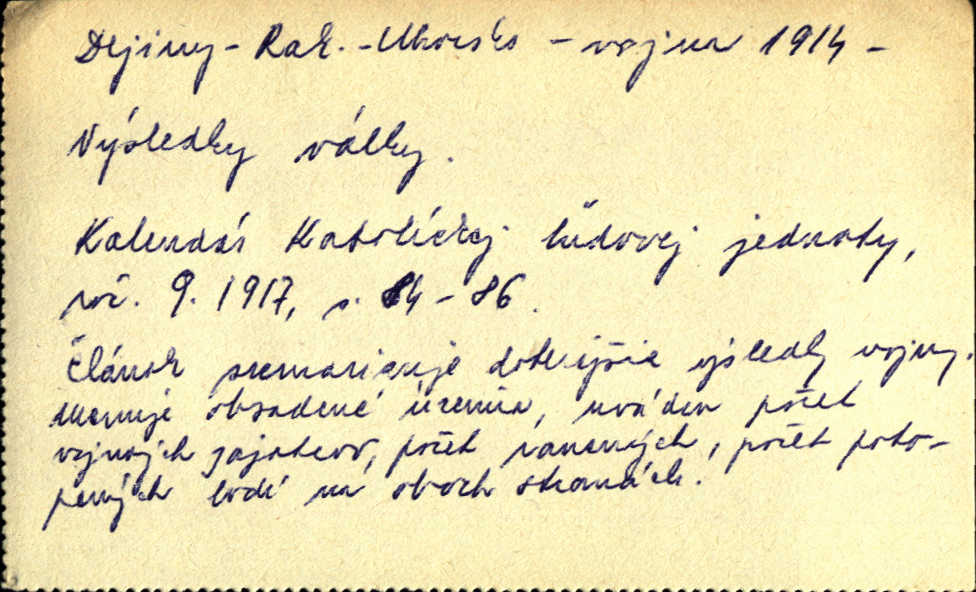 Dejiny - Rak. - Uhorsko - vojna 1914 -
Výsledky války.
Kalendár Katolíckej ľudovej jednoty,
roč. 9. 1917, s. 84-86.
Článok sumarizuje doterajšie výsledky vojny,
menuje obsadené územia, uvádza počet
vojnových zajatcov, počet ranených, počet poto-
pených lodí na oboch stranách.